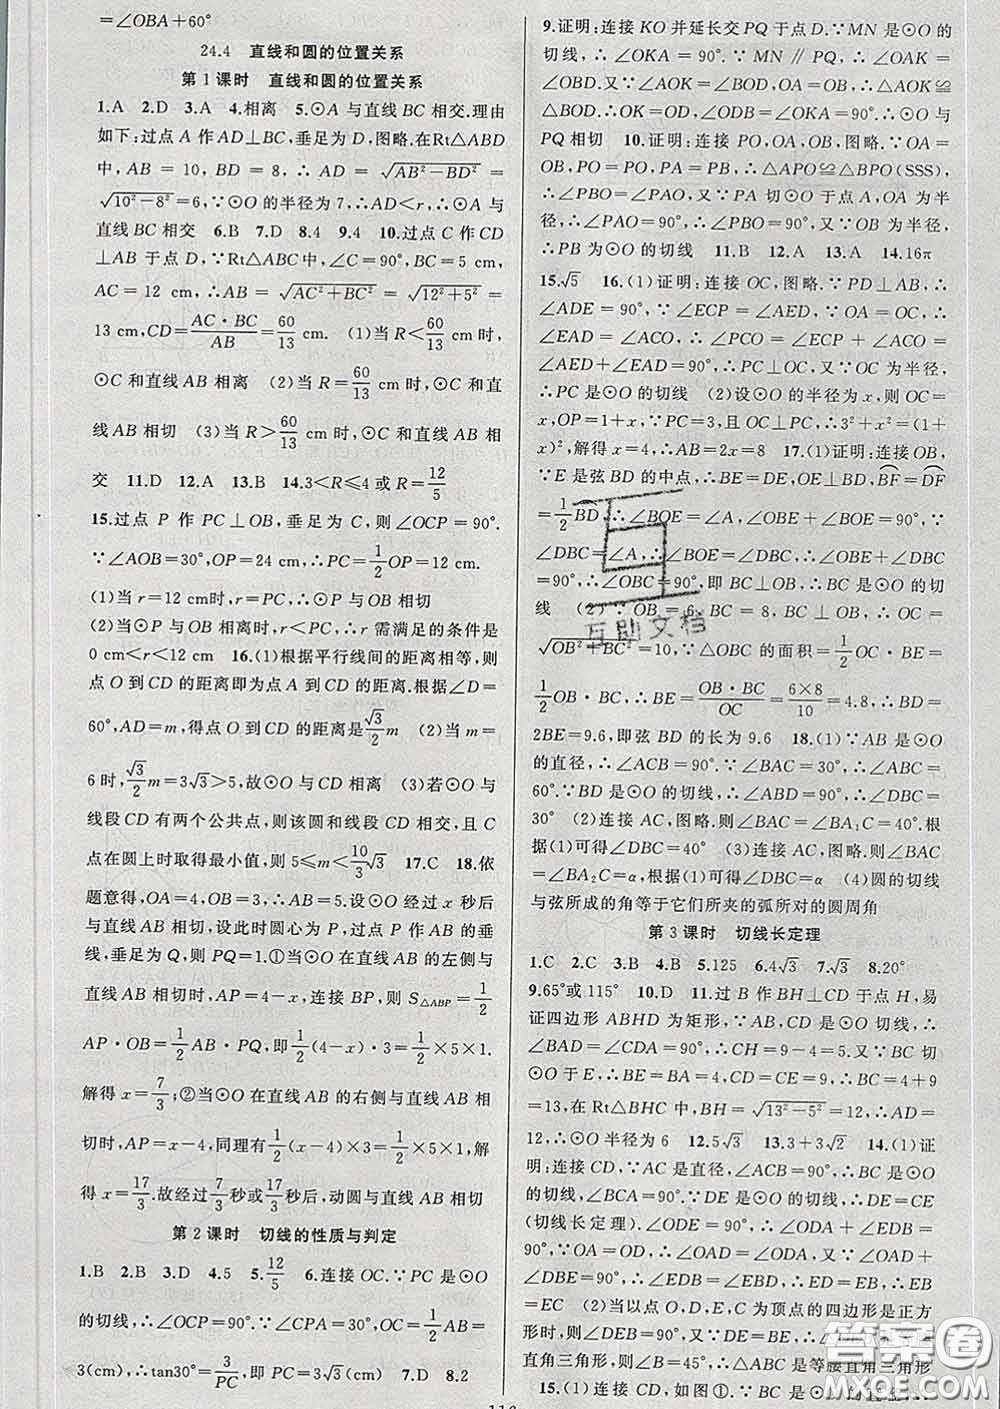 =∠OBA+60°
24.4 直线和圆的位置关系
第1课时 直线和圆的位置关系
1.A 2.D 3.A 4.相离 5.⊙A与直线BC相交.理由
如下:过点A作AD⊥BC,垂足为D,图略.在Rt△ABD
中,AB=10,BD=8,∴AD=√(AB²-BD²)=
√(10²-8²)=6,∵⊙O的半径为7,∴AD<r,∴⊙A与
直线BC相交 6.B 7.D 8.4 9.4 10.过点C作CD
⊥AB于点D.∵Rt△ABC中,∠C=90°,BC=5 cm,
AC=12 cm,∴AB=√(AC²+BC²)=√(12²+5²)=
13 cm,CD=AC·BC/AB=60/13 cm. (1)当R<60/13 cm时,
⊙C和直线AB相离 (2)当R=60/13 cm时,⊙C和直
线AB相切 (3)当R>60/13 cm时,⊙C和直线AB相
交 11.D 12.A 13.B 14.3<R≤4或R=12/5
15.过点P作PC⊥OB,垂足为C,则∠OCP=90°.
∵∠AOB=30°,OP=24 cm,∴PC=1/2OP=12 cm.
(1)当r=12 cm时,r=PC,∴⊙P与OB相切
(2)当⊙P与OB相离时,r<PC,∴r需满足的条件是
0 cm<r<12 cm 16.(1)根据平行线间的距离相等,则
点O到CD的距离即为点A到CD的距离.根据∠D=
60°,AD=m,得点O到CD的距离是√3/2m (2)当m=
6时,√3/2m=3√3>5,故⊙O与CD相离 (3)若⊙O与
线段CD有两个公共点,则该圆和线段CD相交,且C
点在圆上时取得最小值,则5≤m<10/3√3 17.C 18.依
题意得,OA=4,OB=3,∴AB=5.设⊙O经过x秒后
与直线AB相切,设此时圆心为P,过点P作AB的垂
线,垂足为Q,则PQ=1.①当⊙O在直线AB的左侧与
直线AB相切时,AP=4-x,连接BP,则S△ABP=1/2
AP·OB=1/2AB·PQ,即1/2(4-x)·3=1/2×5×1.
解得x=7/3;②当⊙O在直线AB的右侧与直线AB相
切时,AP=x-4,同理有1/2(x-4)×3=1/2×5×1,解
得x=17/3.故经过7/3秒或17/3秒后,动圆与直线AB相切
第2课时 切线的性质与判定
1.B 2.B 3.D 4.5 5.12/5 6.连接OC.∵PC是⊙O
的切线,∴∠OCP=90°.∵∠CPA=30°,OC=1/2AB=
3(cm),∴tan30°=3/PC,即PC=3√3(cm) 7.D 8.2
9.证明:连接KO并延长交PQ于点D.∵MN是⊙O
的切线,∴∠OKA=90°.∵MN∥PQ,∴∠OAK=
∠OBD.又∵∠AOK=∠BOD,∴△AOK≌
△BOD.∴OK=OD,∠ODB=∠OKA=90°,∴⊙O与
PQ相切 10.证明:连接PO,OA,OB,图略.∵OA=
OB,PO=PO,PA=PB,∴△APO≌△BPO(SSS),
∴∠PBO=∠PAO,又∵PA切⊙O于点A,OA为半
径,∴∠PAO=90°,∴∠PBO=90°,又∵OB为半径,
∴PB为⊙O的切线 11.B 12.A 13.A 14.16π
15.√5 16.(1)证明:连接OC,图略.∵PD⊥AB,∴
∠ADE=90°,∵∠ECP=∠AED,又∵OA=OC,∴
∠EAD=∠ACO,∴∠PCO=∠ECP+∠ACO=
∠AED+∠EAD=90°,∴PC⊥OC,又∵OC是半径,
∴PC是⊙O的切线 (2)设⊙O的半径为x,则OC=
x,OP=1+x,∵PC=3,且OC⊥PC,∴3²+x²=(1+
x)²,解得x=4,∴AB=2x=8 17.(1)证明:连接OB,
∵E是弦BD的中点,∴BE=DE,OE⊥BD,BF=DF
=1/2BD,∴∠BOE=∠A,∠OBE+∠BOE=90°.∵
∠DBC=∠A,∴∠BOE=∠DBC,∴∠OBE+∠DBC
=90°,∴∠OBC=90°,即BC⊥OB,∴BC是⊙O的切
线 (2)∵OB=6,BC=8,BC⊥OB,∴OC=
√(OB²+BC²)=10.∵△OBC的面积=1/2OC·BE=
1/2OB·BC,∴BE=OB·BC/OC=6×8/10=4.8,∴BD=
2BE=9.6,即弦BD的长为9.6 18.(1)∵AB是⊙O
的直径,∴∠ACB=90°.∵∠BAC=30°,∴∠ABC=
60°.∵BD是⊙O的切线,∴∠ABD=90°,∴∠DBC=
30° (2)连接AC,图略.则∠BAC=∠BA₁C=40°.
根据(1)可得∠DBC=40° (3)连接AC,图略.则∠BAC
=∠BA₂C=α,根据(1)可得∠DBC=α (4)圆的切线
与弦所成的角等于它们所夹的弧所对的圆周角
第3课时 切线长定理
1.C 2.C 3.B 4.B 5.125 6.4√3 7.√3 8.20°
9.65°或115° 10.D 11.过B作BH⊥CD于点H,易
证四边形ABHD为矩形,∵AB,CD是⊙O的切线,∴
∠BAD=∠CDA=90°,∴CH=9-4=5.又∵BC切
⊙O于E,∴BE=BA=4,CD=CE=9,∴BC=4+9
=13,在Rt△BHC中,BH=√(13²-5²)=12,∴AD=
12,∴⊙O半径为6 12.5√3 13.3+3√2 14.(1)证
明:连接CD,∵AC是直径,∠ACB=90°,∴BC是⊙O
的切线,∠BCA=90°.∵DE是⊙O的切线,∴DE=CE
(切线长定理).∠ODE=90°,∴∠ODA+∠EDB=
90°,∵OA=OD,∴∠OAD=∠ODA,又∵∠OAD+
∠DBE=90°,∴∠EDB=∠EBD,∴DE=EB,∴EB
=EC (2)当以点O,D,E,C为顶点的四边形是正方
形时,则∠DEB=90°,又∵DE=BE,∴△DEB是等腰
直角三角形,则∠B=45°,∴△ABC是等腰直角三角形
15.(1)连接CD,如图①.∵
互助文档
答案圈